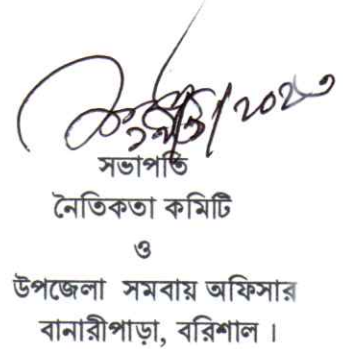 সভাপতি
নৈতিকতা কমিটি
ও
উপজেলা সমবায় অফিসার
বানারীপাড়া, বরিশাল।